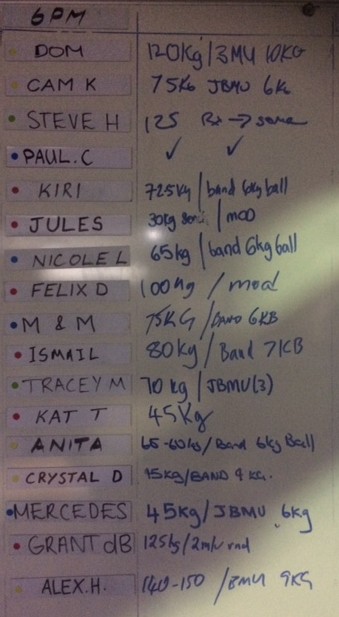 6PM
DOM 120Kg/3MU 10KG
CAM K 75Kg JBMU 6Kg
STEVE H 125 Rx → same
PAUL.C ✓ ✓
KIRI 72.5Kg/band 6kg ball
JULES 30kg / mod
NICOLE L 65kg/band 6kg ball
FELIX D 100kg / mod
M & M 75KG/BAND 6KB
ISMAIL 80kg/Band 7KB
TRACEY M 70 kg/JBMU(3)
KAT T 45Kg
ANITA 65-60kg/Band 6kg Ball
CRYSTAL D 45KG/BAND 9 KG.
MERCEDES 45kg/JBMU 6kg
GRANT dB 125kg/2mu rnd
ALEX.H. 140-150 /BMU 9KG